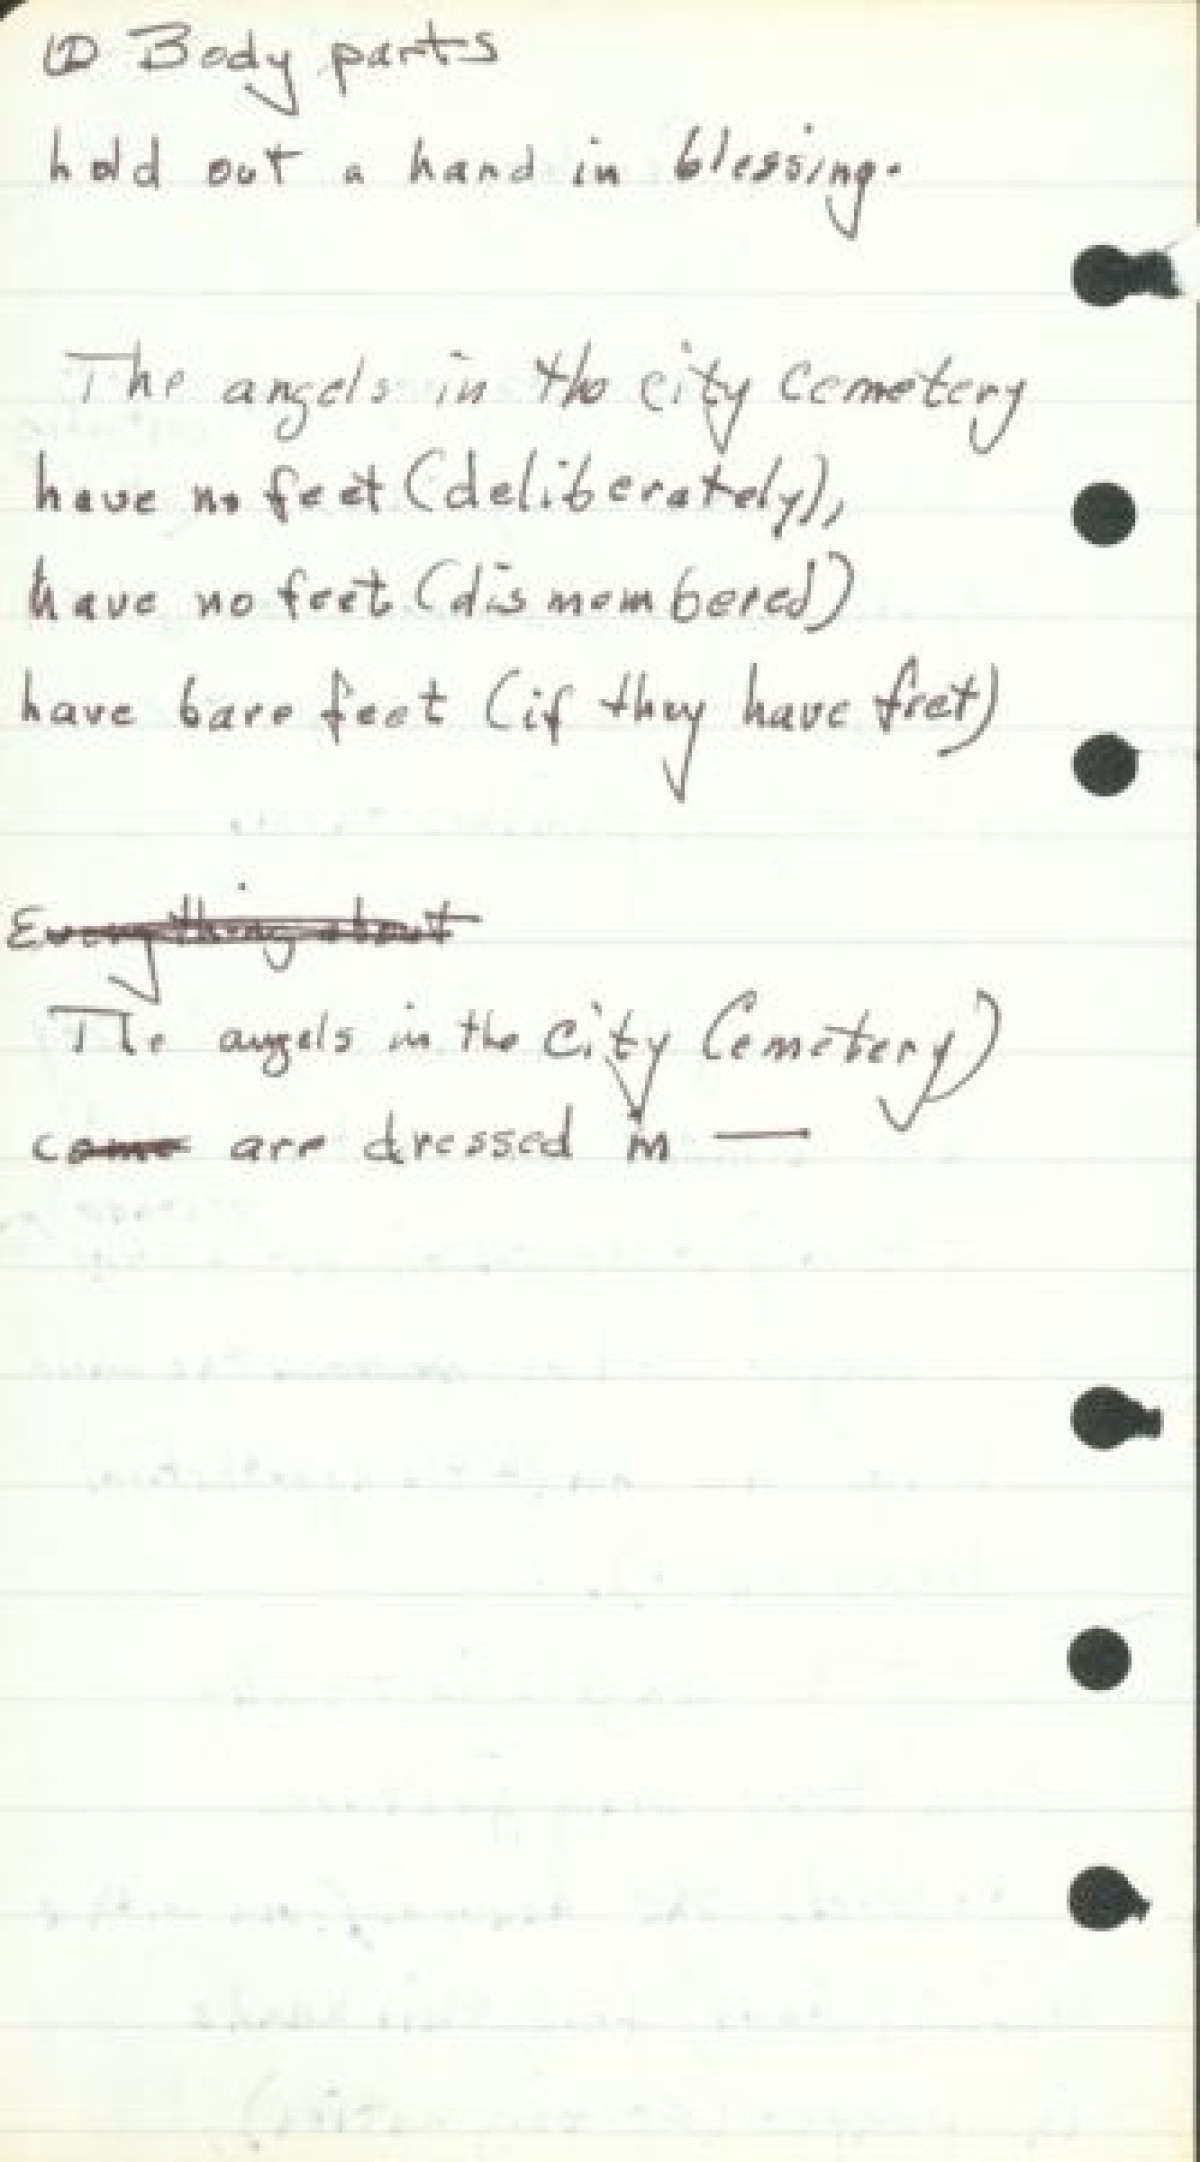 ① Body parts
hold out a hand in blessing.
The angels in the city cemetery
have no feet (deliberately),
have no feet (dismembered)
have bare feet (if they have feet)
Everything about
The angels in the City Cemetery)
come are dressed in —